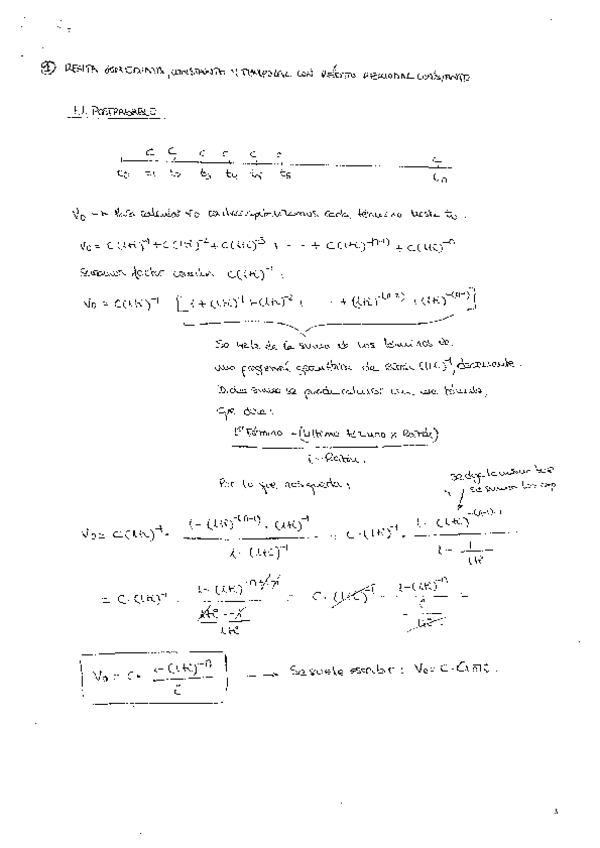 ① RENTA INMEDIATA, CONSTANTE Y TEMPORAL CON RÉDITO PERIODAL CONSTANTE
1.1. POSTPAGABLE
C C C C C C C
t0 t1 t2 t3 t4 t5 t6 tn
V0 → Para calcular V0 cada término hasta t0.
V0 = C(1+i)^-1 + C(1+i)^-2 + C(1+i)^-3 + ... + C(1+i)^-(n-1) + C(1+i)^-n
Sacamos factor común C(1+i)^-1:
V0 = C(1+i)^-1 [1 + (1+i)^-1 + (1+i)^-2 + ... + (1+i)^-(n-2) + (1+i)^-(n-1)]
Se trata de la suma de los términos de
una progresión geométrica de razón (1+i)^-1, decreciente.
Dicha suma se puede calcular con una fórmula,
que dice:
1er Término - (Último término x Razón)
1 - Razón.
Por lo que nos queda:
se deja la misma base
se suman los exp
V0 = C(1+i)^-1 · (1 - (1+i)^-(n-1) · (1+i)^-1) / (1 - (1+i)^-1) = C·(1+i)^-1 · (1 - (1+i)^-(n-1)-1) / (1 - 1/(1+i))
= C·(1+i)^-1 · (1 - (1+i)^-n+1-1) / ((1+i-1)/(1+i)) = C·(1+i)^-1 · (1-(1+i)^-n) / (i/(1+i)) =
V0 = C · (1-(1+i)^-n) / i → Se suele escribir: V0 = C·a n i.